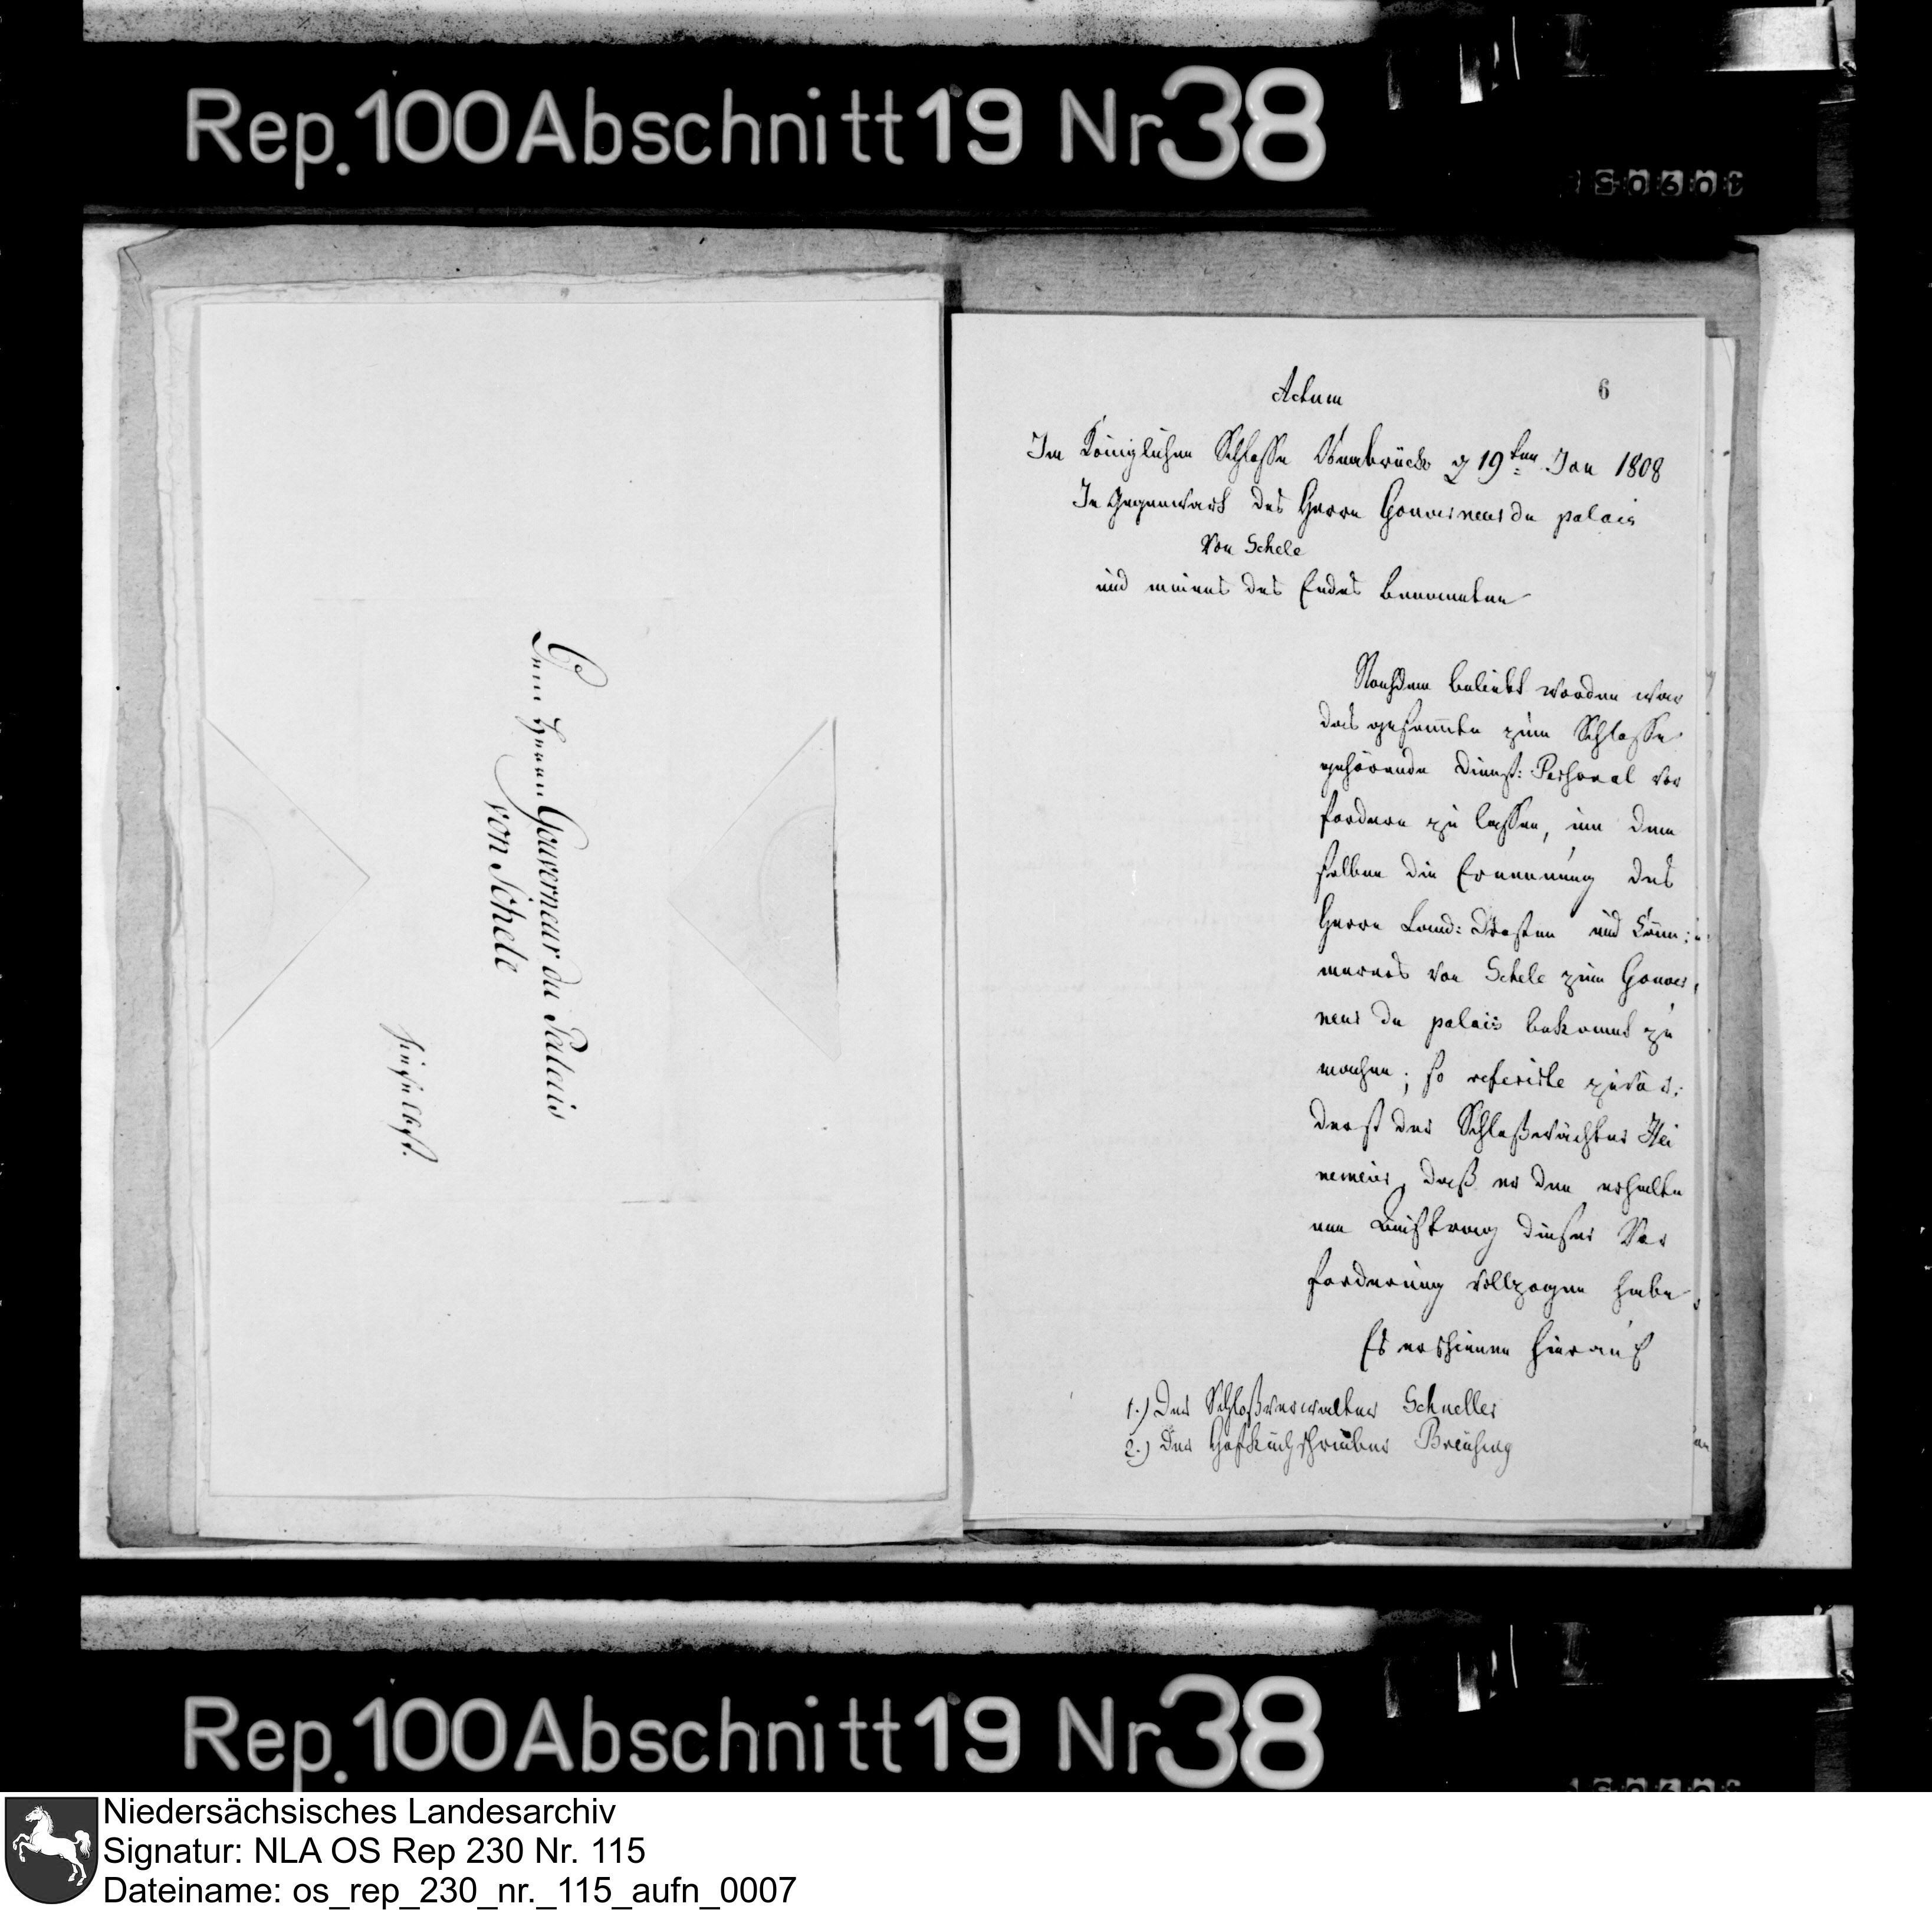 Rep. 100 Abschnitt 19 Nr 38
Dem Herrn Gouverneur du Palais
von Schele
hieselbst.
6
Actum
Im Königlichen Schlosse Osnabrück d 19ten Jan 1808
In Gegenwart des Herrn Gouverneur du palais
von Schele
und meines des Endes benannten
Nachdem beliebt worden war
das gesam̅te zum Schlosse
gehörende Dienst: Personal vor
fordern zu lassen, um dem
selben die Ernennung des
Herrn Land: Drosten und
merers von Schele zum Gouver
neur du palais bekannt zu
machen; so referirte zuvör:
derst der Schloßwächter Hei
nemeier, daß er den erhalte
nen Auftrag dieser Vor
forderung vollzogen habe,
Es erschienen hierauf
1.) Der Schloßverwalter Schneller
2.) Der Hofküchschreiber Breusing
Rep. 100 Abschnitt 19 Nr 38
Niedersächsisches Landesarchiv
Signatur: NLA OS Rep 230 Nr. 115
Dateiname: os_rep_230_nr._115_aufn_0007